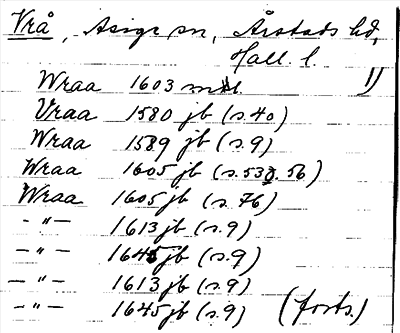 Vrå, Asige sn, Årstads hd,
Hall. l.
Wraa 1603 mtl 1)
Vraa 1580 jb (s. 40)
Wraa 1589 jb (s. 9)
Wraa 1605 jb (s. 53, 56)
Wraa 1605 jb (s. 76)
- " - 1613 jb (s. 9)
- " - 1645 jb (s. 9)
- " - 1613 jb (s. 9)
- " - 1645 jb (s. 9) (forts.)